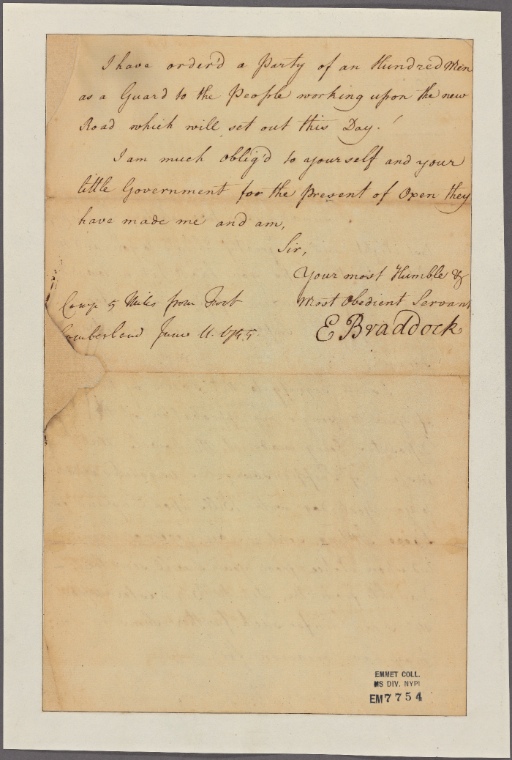 I have order'd a Party of an Hundred Men
as a Guard to the People working upon the new
Road which will set out this Day.
I am much oblig'd to yourself and your
little Government for the Present of Oxen they
have made me and am,
Sir,
Your most Humble &
Most Obedient Servant
E Braddock
Camp 5 Miles from Fort
Cumberland June 11. 1755.
EMMET COLL.
MS DIV. NYPL
EM 7754